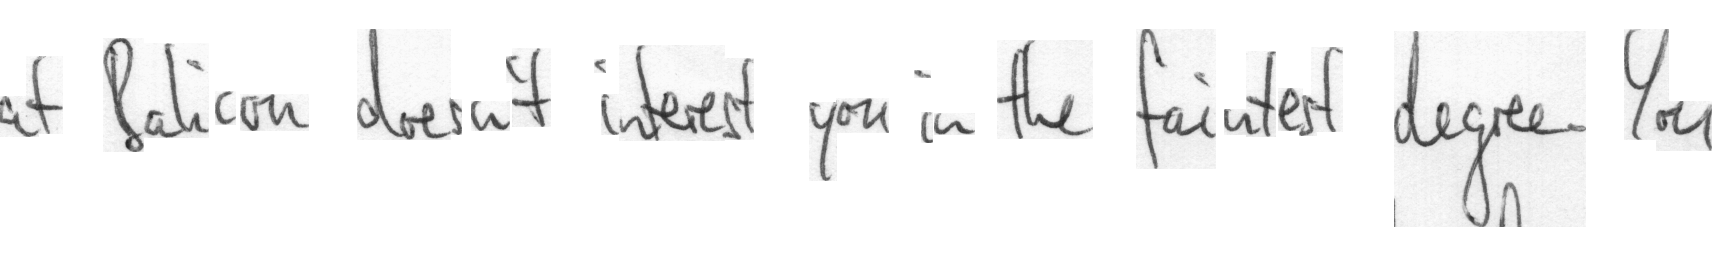 at Balicon doesn't interest you in the faintest degree. You